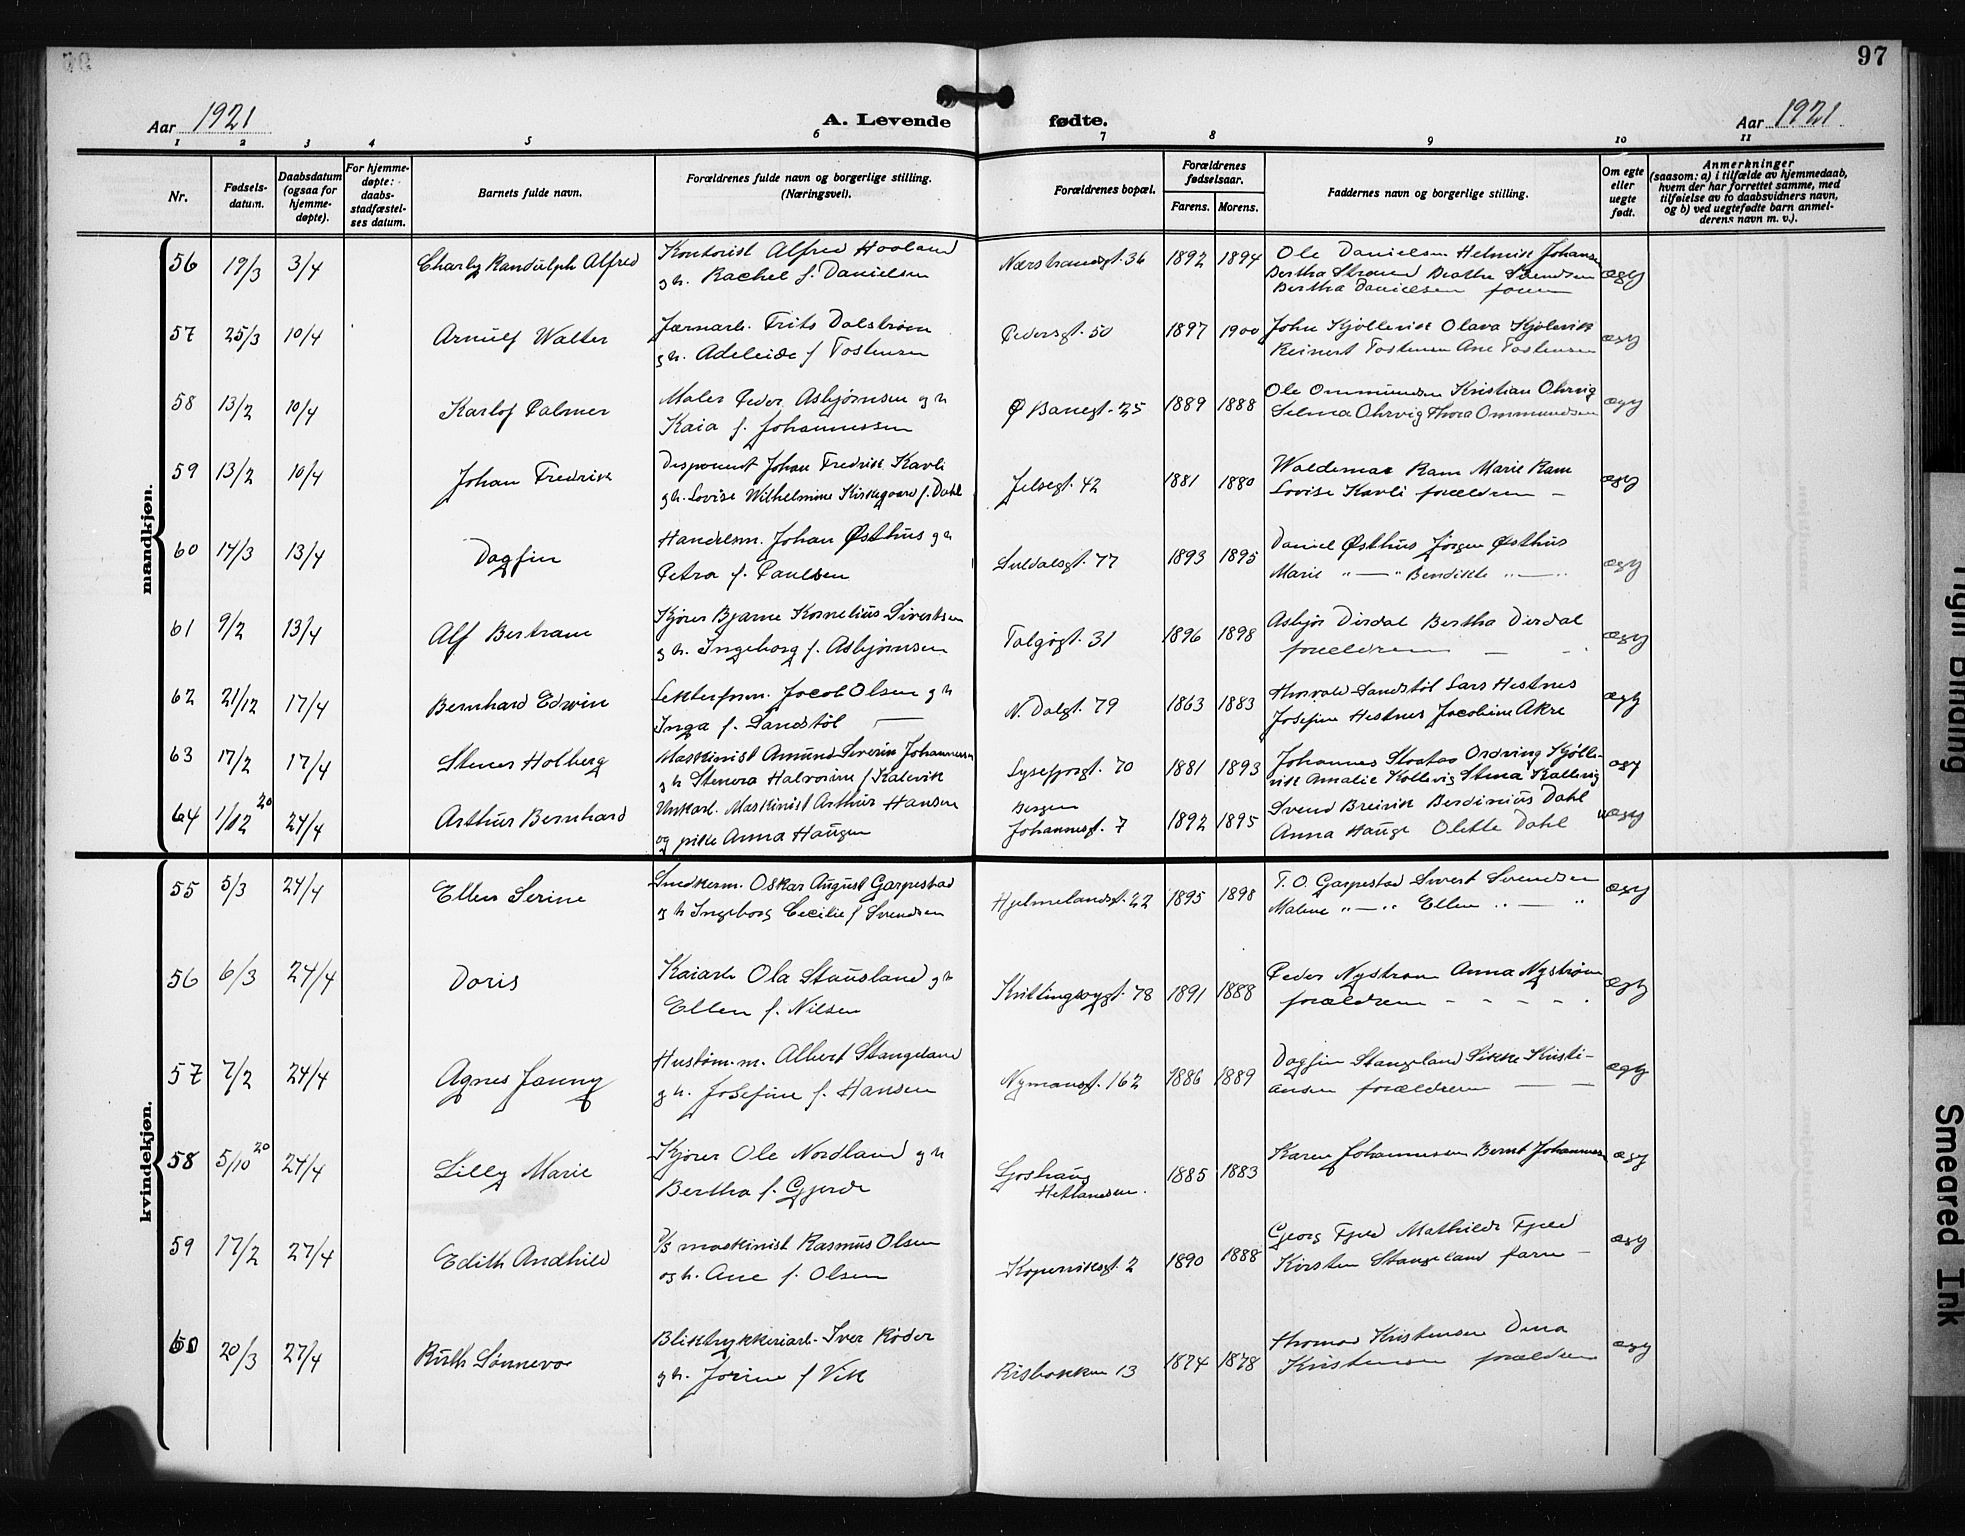 97
Aar 1921
A. Levende fødte.
Aar 1921
1 2 3 4 5 6 7 8 9 10 11
Nr.
Fødsels-
datum.
Daabsdatum
(ogsaa for
hjemme-
døpte).
For hjemme-
døpte:
daabs-
stadfæstel-
ses datum.
Barnets fulde navn.
Forældrenes fulde navn og borgerlige stilling.
(Næringsvei).
Forældrenes bopæl.
Forældrenes
fødselsaar.
Farens. Morens.
Faddernes navn og borgerlige stilling.
Om egte
eller
uegte
født.
Anmerkninger
(saasom: a) i tilfælde av hjemmedaab,
hvem der har forrettet samme, med
tilføielse av to daabsvidners navn,
og b) ved uegtefødte barn anmel-
derens navn m. v.).
mandkjøn.
56 19/3 3/4 Charly Randulph Alfred Kontorist Alfred Hooland
g h. Rachel f. Danielsen Nærstrandsgt. 36 1892 1894 Ole Danielsen Helmik Johansen
Bertha Danielsen ægt
57 25/3 10/4 Arnulf Walter Jærnarb. Frits Dalstrøm
g h. Adeleide f Tostensen Pedersgt. 50 1897 1900 John Kjøllevik Olava Kjølevik
Reinert Tostensen Ane Tostensen ægt
58 13/2 10/4 Karlof Palmer Maler Peder Asbjørnsen g h
Kaia f. Johannessen Ø Banegt. 25 1889 1888 Ole Ommundsen Kristian Ohrvig
Selma Ohrvig Thora Ommundsen ægt
59 13/2 10/4 Johan Fredrik Disponent Johan Fredrik Kavli
g h. Lovise Wilhelmine Kirkegaard f. Dahl Jelsegt. 42 1881 1880 Waldemar Ram Marie Ram
Lovise Kavli forældren – ægt
60 14/3 13/4 Dagfin Handelsm. Johan Østhus g h
Petra f. Paulsen Suldalsgt. 77 1893 1895 Daniel Østhus Jørgen Østhus
Marie " — " Bendikte " — " ægt
61 9/2 13/4 Alf Bertram Kjører Bjarne Kornelius Sivertsen
g h. Ingeborg f. Asbjørnsen Talgøgt. 31 1896 1898 Asbjør Dirdal Bertha Dirdal
forældren – – ægt
62 21/12 17/4 Bernhard Edvin Lekterform. Jacob Olsen g h
Inga f. Sandstøl — N. Dalgt. 79 1863 1883 Thorvald Sandstøl Lars Hestnes
Josefine Hestnes Jacobine Akre ægt
63 17/2 17/4 Stener Holberg Maskinist Amund Severin Johannessen
g h Stenora Halvorine f Kalevik Lysefjorgt. 70 1881 1893 Johannes
Amalie Kollevig Stina Kallevig ægt
64 1/12 20 24/4 Arthur Bernhard Unkarl. Maskinist Arthur Hansen
og pike Anna Haugen Bergen
Johannesgt. 7 1892 1895 Svend Breivik Berdinius Dahl
Anna Hauge Olette Dahl uægt
kvindekjøn.
55 5/3 24/4 Ellen Serine Snedkerm. Oskar August Garpestad
g h Ingeborg Cecilie f Svendsen Hjelmelandsgt. 22 1895 1898 T. O. Garpestad Sivert Svendsen
Malene " — " Ellen " — " ægt
56 6/3 24/4 Doris Kaiarb Ola Stausland g h
Ellen f. Nilsen 78 1891 1888 Peder Nystrøm Anna Nystrøm
forældren – – – – ægt
57 7/2 24/4 Agnes Jonny Hustøm.m. Albert Stangeland
g h. Josefine f. Hansen Nymansgt. 162 1886 1889 Dagfin Stangeland Sikke Kristi-
ansen forældren — — ægt
58 5/10 20 24/4 Lilly Marie Kjører Ole Nordland g h
Bertha f. Gjerde Gjoshaug
Hetlandssn. 1885 1883 Karen Johannessen Bernt Johannessen ægt
59 17/2 27/4 Edith Andhild D/S maskinist Rasmus Olsen
og h. Ane f. Olsen Kopervikgt. 2 1890 1888 Georg Fjeld Mathilde Fjeld
Kirsten Stangeland faren – ægt
60 20/3 27/4 Ruth Sønneva Bliktrykkeriarb. Iver Røder
g h. Jorine f Vik Risbakken 13 1874 1878 Thomas Kristensen Dina
Kristensen forældren ægt
Tight Binding
Smeared Ink